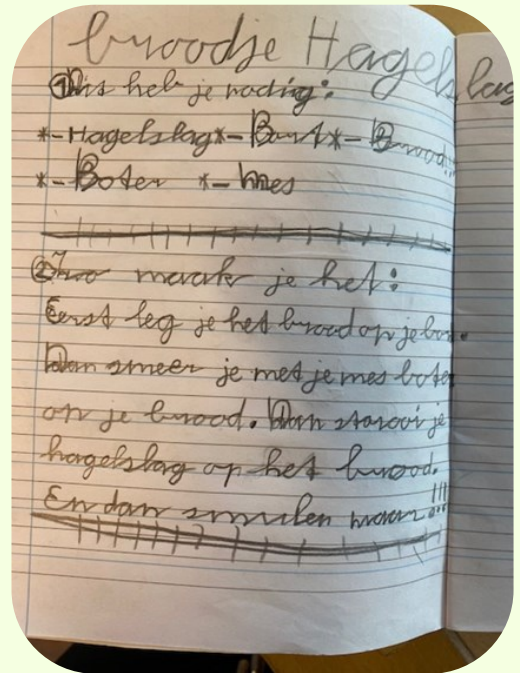 broodje Hagelslag
① Dis heb je nodig:
*-Hagelslag *-Bort *-Brood
*-Boter *-mes
② Zoo maak je het:
Eerst leg je het brood op je bor
Dan smeer je met je mes boter
op je brood. Dan strooi je
hagelslag op het brood.
En dan smulen maar!!!